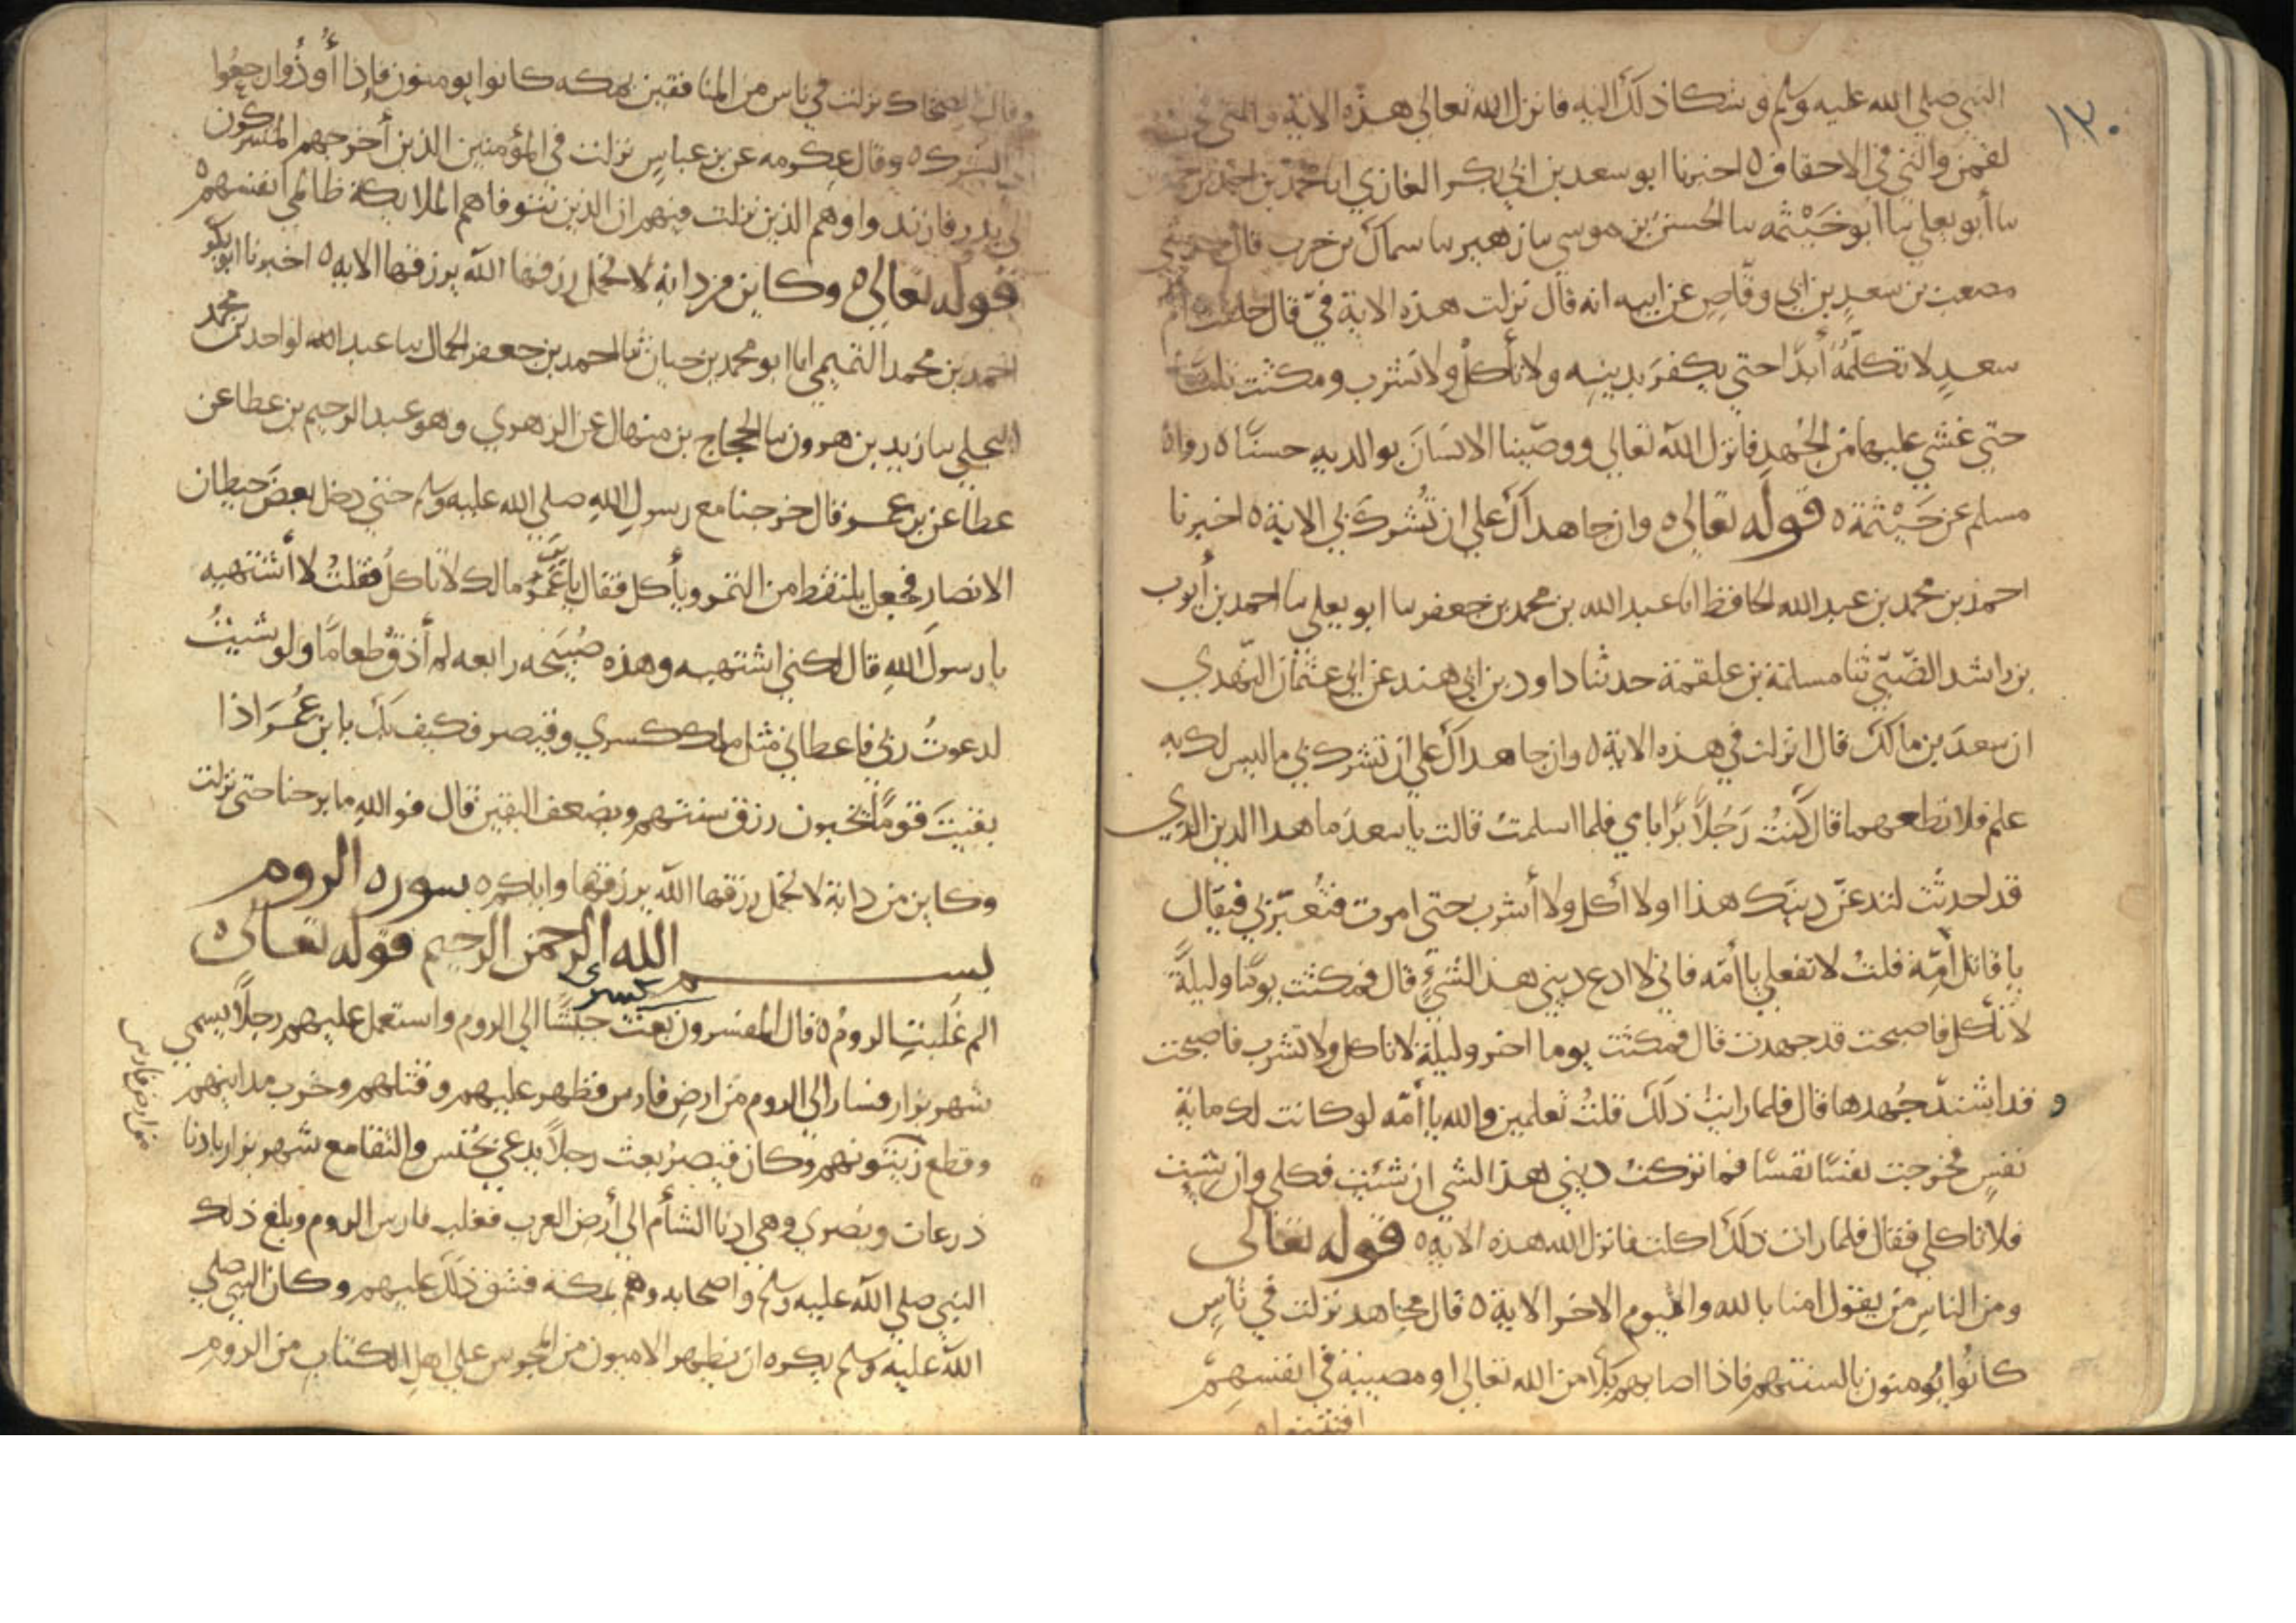 ١٣٠
النبي صلى الله عليه وسلم وشكا ذلك اليه فانزل الله تعالى هذه الاية والتي في
لقمن والتي في الاحقاف ٥ اخبرنا ابو سعد بن ابي بكر الغازي انا محمد بن احمد بن
نا أبو يعلى نا أبو خَيْثَمه نا الحسن بن موسى نا زهير نا سماك بن حرب قال حدثني
مصعب بن سعدٍ بن ابي وقاصٍ عن ابيه انه قال نزلت هذه الاية فيّ قال حلفت ام
سعدٍ لا تكلّمهُ أبدًا حتي يكفرَ بدينِه ولا تأكلُ ولا تشرب ومكثت ثلثًا
حتي غشي عليها من الجُهدِ فانزل الله تعالي ووصّينا الانسَانَ بوالديهِ حسنًا ٥ رواهُ
مسلم عن خَيْثمة ٥ قوله تعالى ٥ وان جاهداك علي ان تُشرك بي الاية ٥ اخبرنا
احمد بن محمد بن عبد الله الحافظ انا عبد الله بن محمد بن جعفر نا ابو يعلي نا احمد بن أيوب
بن راشد الضّبّي ثنا مسلمة بن علقمة حدثنا داود بن ابي هند عن ابي عثمان النّهدي
ان سعدَ بن مالك قال انزلت في هذه الاية ٥ وان جاهداك علي ان تشرك بي ما ليس لك به
علم فلا تطعهما قال كنتُ رَجُلًا بَرًّا بامي فلما اسلمتُ قالت يا سعدُ ما هذا الدين الذي
قد احدثت لتدعنّ دينك هذا اولا أكل ولا أشرب حتي اموت فتُعيّر بي فيقال
يا قاتل أمِّه قلتُ لا تفعلي يا أمّه فاني لا ادع ديني هذ الشيءِ قال فمكثت يومًا وليلةً
لا تأكل فاصبحت قد جهدت قال فمكثت يوما اخر وليلة لا تاكل ولا تشرب فاصبحت
و قد اشتدّ جُهدها قال فلما رايتُ ذلك قلتُ تعلمين والله يا أمّه لو كانت لك ماية
نفسٍ فخرجت نفسًا نفسًا ما تركت ديني هذ الشي ان شئتِ فكلي وان شيتِ
فلا تاكلي فقال فلما رات ذلك اكلت فانزل الله هذه الاية ٥ قوله تعالى
ومن الناسِ من يقول امنا بالله واليوم الاخر الاية ٥ قال مجاهد نزلت في ناسٍ
كانُوا يُومنون بالسنتهم فاذا اصابهم بَلَا من الله تعالى او مصيبة في انفسهِم
افتتنوا ٥
وقال الضحاك نزلت في ناس من المنافقين بمكه كانوا يومنون فإذا أُوذُوا رجعُوا
الي الشرك ٥ وقال عكرمه عن بن عباسٍ نزلت في المؤمنين الذين أخرجهم المشركون
الي بدر فارتدوا وهم الذين نزلت فيهم ان الذين تتوفاهم الملايكة ظالمي انفسهم ٥
قوله تعالي ٥ وكاين من دابة لا تحمل رزقها الله يرزقها الاية ٥ اخبرنا ابو بكر
احمد بن محمد التميمي انا ابو محمد بن حيان ثنا احمد بن جعفر الجمال نا عبد الواحد بن محمد
البجلي نا زيد بن هرون نا الحجاج بن منهال عن الزهري وهو عبد الرحيم بن عطا عن
عطا عن بن عمر قال خرجنا مع رسول اللهِ صلى الله عليه وسلم حتي دخل بعضَ حيطان
الانصار فجعل يلتقط من التمر ويأكل فقال يا بن عُمَر مالك لا تاكلُ فقلتُ لا أشتهيه
يا رسولَ اللهِ قال لكني اشتهيه وهذه صُبَيحه رابعه لم أذق طعامًا ولو شيتُ
لدعوتُ ربي فاعطاني مثل ملك كسري وقيصر فكيف بك يا بن عُمَرَ اذا
بقيتَ قومًا يخبون رزق سنتهم ويضعف اليقين قال فوالله ما برحنا حتي نزلت
وكاين من دابة لا تحمل رزقها الله يرزقها واياكم ٥ سوره الروم
بســـــم الله الرحمن الرحيم قوله تعالى ٥
كسرى
الم غُلبتِ الرومُ ٥ قال المفسرون بعث جيشًا الي الروم واستعمل عليهم رجلًا يسمي
شهر بزار فسار الي الروم من ارض فارس فظهر عليهم وقتلهم وخرب مداينهم
وقطع زيتونهم وكان قيصرُ بعث رجلًا يدعي يحنس والتقا مع شهر بزار بادنا
ذرعات وبصري وهي ادنا الشأم الي أرض العرب فغلب فارس الروم وبلغ ذلك
النبي صلى الله عليه وسلم واصحابه وهم بمكة فشق ذلك عليهم وكان النبي صلى
الله عليه وسلم يكره ان يظهر الاميون من المجوس علي اهل الكتاب من الرومِ